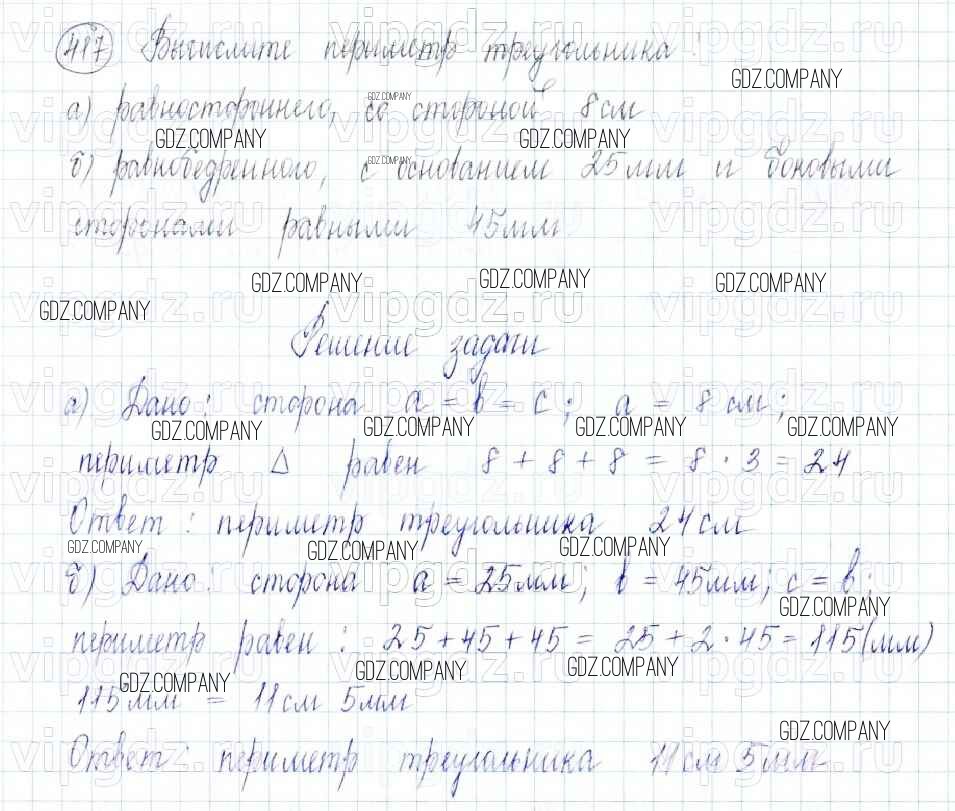 487 Вычислите периметр треугольника:
а) равностороннего, со стороной 8 см
б) равнобедренного, с основанием 25 мм и боковыми
сторонами равными 45 мм
Решение задачи
а) Дано: сторона a = b = c; a = 8 см;
периметр Δ равен 8 + 8 + 8 = 8 · 3 = 24
Ответ: периметр треугольника 24 см
б) Дано: сторона a = 25 мм; b = 45 мм; c = b;
периметр равен: 25 + 45 + 45 = 25 + 2 · 45 = 115 (мм)
115 мм = 11 см 5 мм
Ответ: периметр треугольника 11 см 5 мм
vipgdz.ru
GDZ.COMPANY